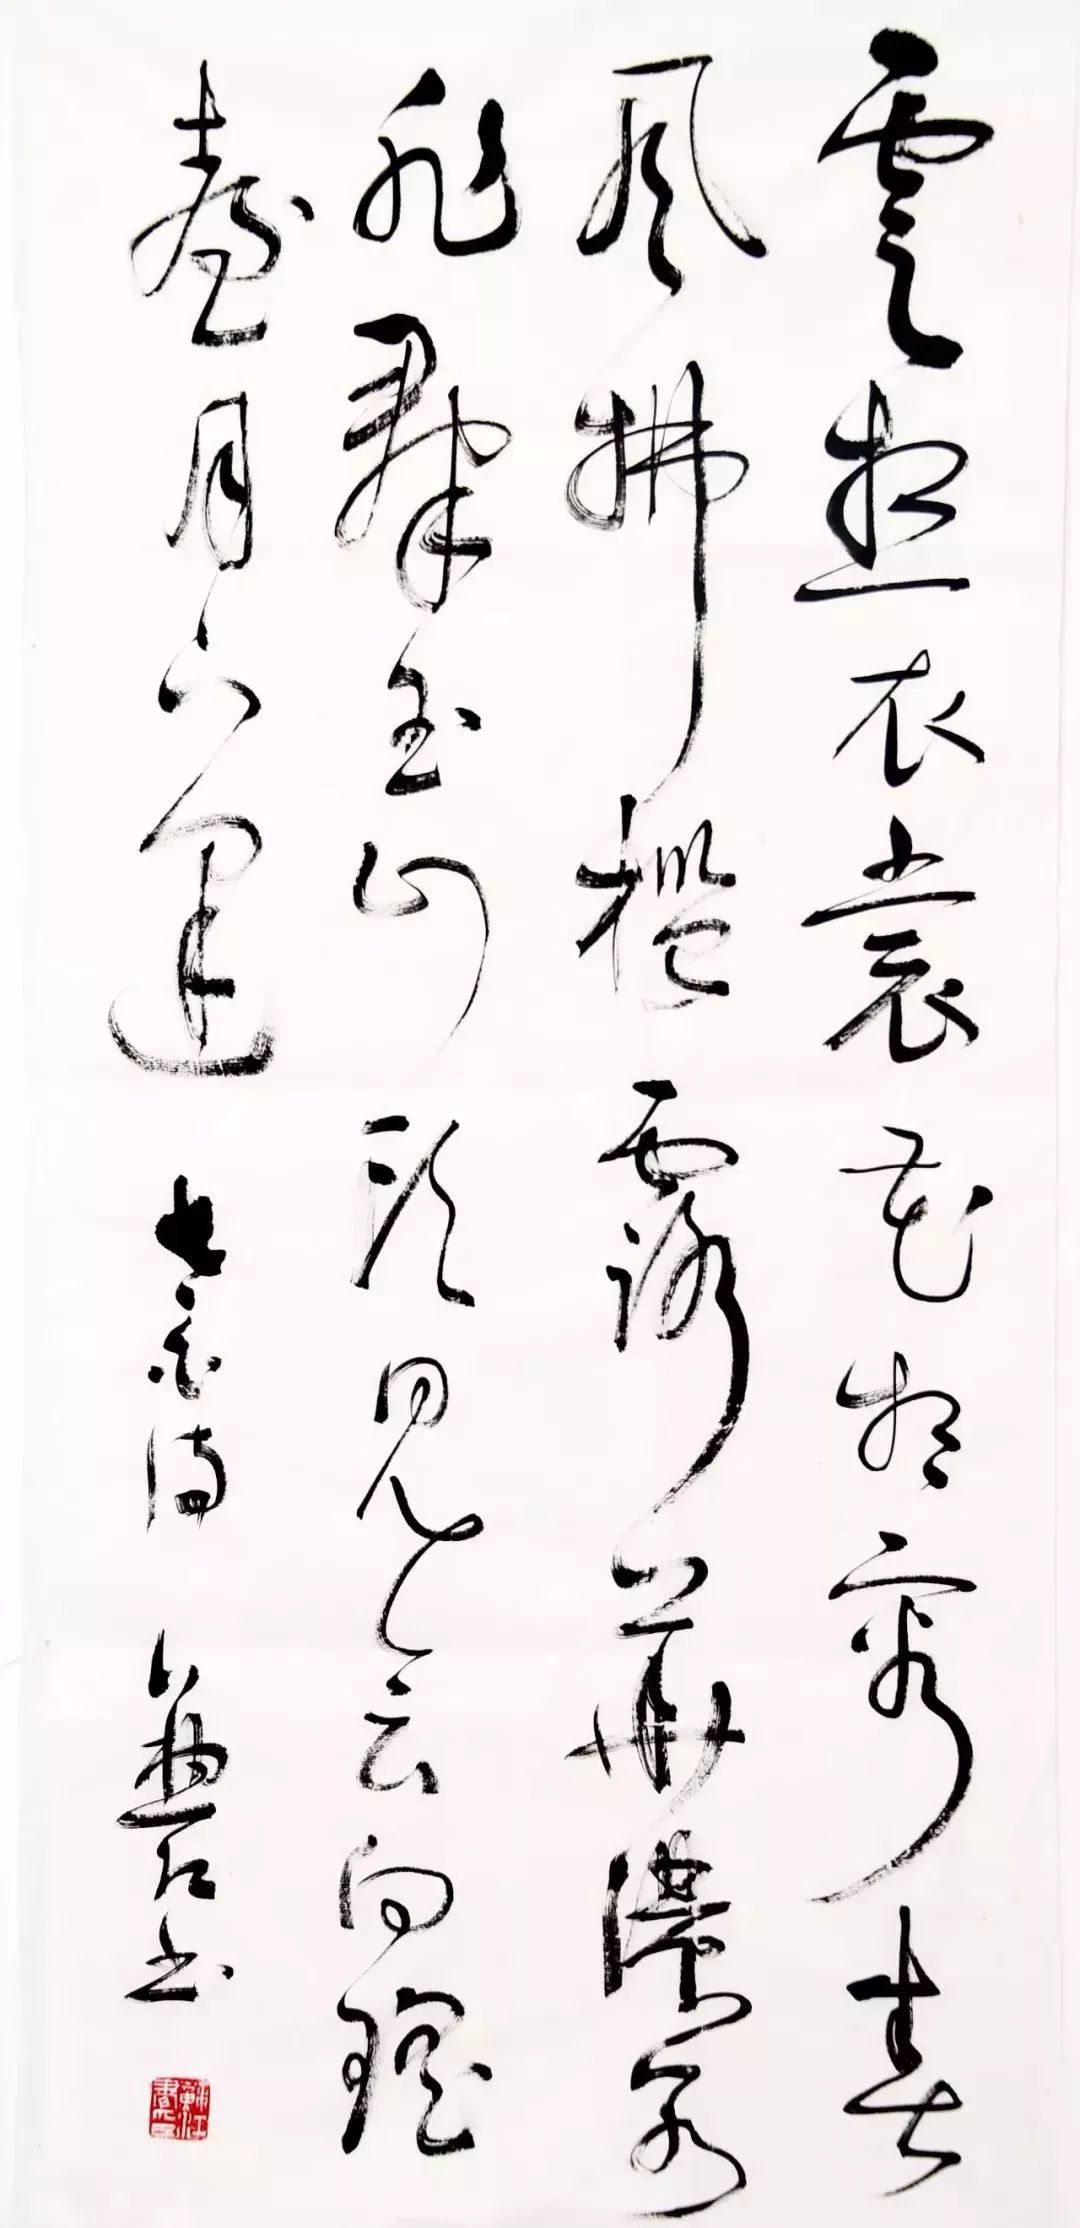 雲想衣裳花想容春
風拂檻露華濃若
非群玉山頭見会向瑤
臺月下逢 李白詩 书